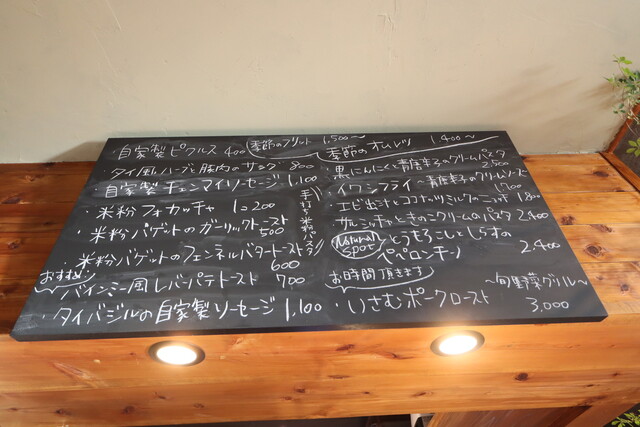 自家製ピクルス 400
季節のフリット 1,500〜
タイ風ハーブと豚肉のサラダ 800
自家製チェンマイソーセージ 1,100
・米粉フォカッチャ 1コ200
・米粉バゲットのガーリックトースト
500
・米粉バゲットのフェンネルバタートースト
600
おすすめ!
・バインミー風レバーパテトースト 700
・タイバジルの自家製ソーセージ 1,100
手打ち米粉パスタ
季節のオムレツ 1400〜
・黒にんにくと青唐辛子のクリームパスタ
2,500
・イワシフライ〜青唐辛子のクリームソース〜
1700
・エビ出汁とココナッツミルクのニョッキ 1,800
サルシッチャときのこクリームのパスタ 2,400
Natural
spot
とうもろこしとしらすの
ペペロンチーノ
2,400
お時間頂きます
・いさむポークロースト
〜旬野菜グリル〜
3,000